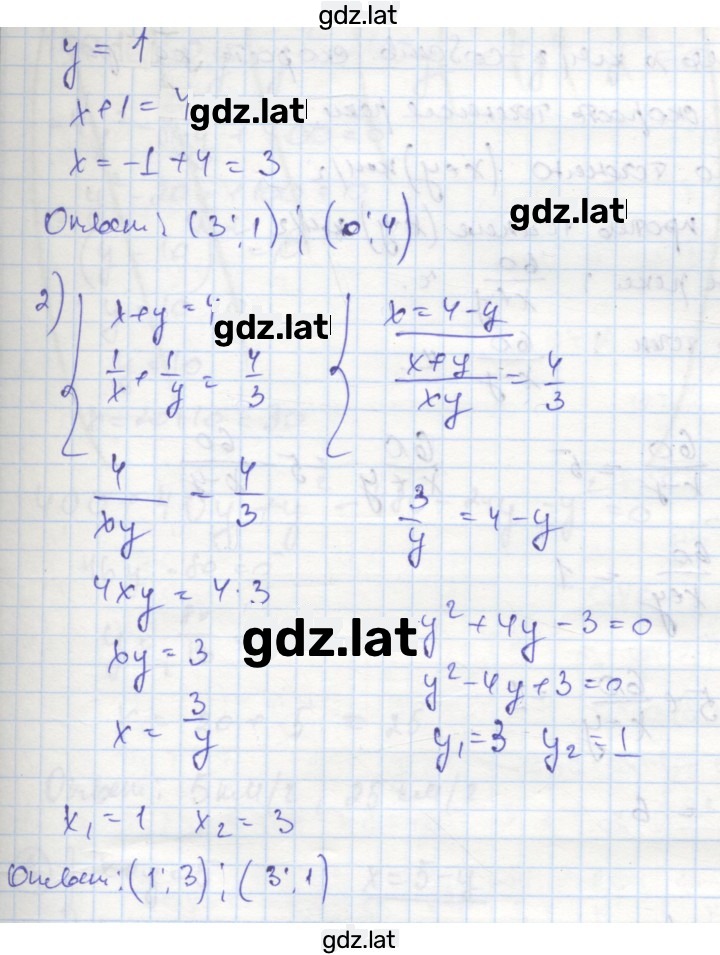 gdz.lat
y = 1
x+1 = 4
gdz.lat
x = -1 + 4 = 3
Ответ: (3; 1); (0; 4)
gdz.lat
2) { x+y = 4
1/x + 1/y = 4/3
gdz.lat
{ x = 4-y
(x+y)/(xy) = 4/3
4/(xy) = 4/3
4xy = 4·3
xy = 3
x = 3/y
3/y = 4-y
gdz.lat
y² + 4y - 3 = 0
y² - 4y + 3 = 0
y₁ = 3 y₂ = 1
x₁ = 1 x₂ = 3
Ответ: (1; 3); (3; 1)
gdz.lat